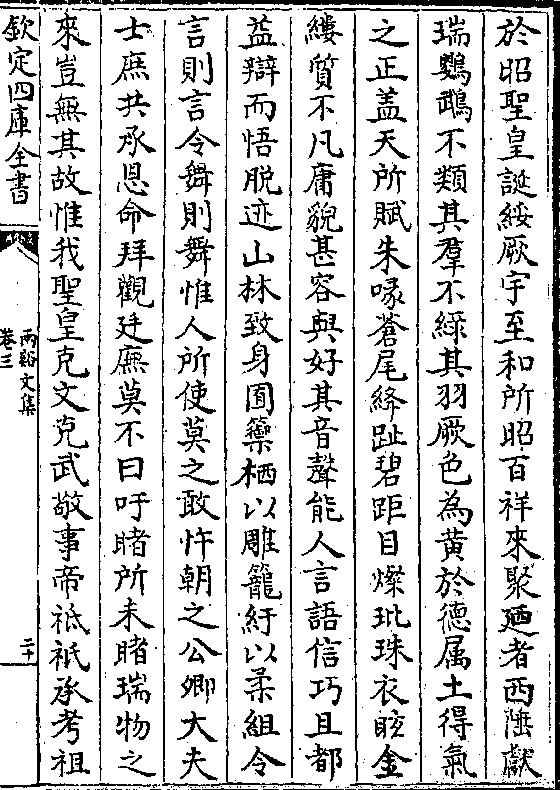 於昭聖皇誕綏厥宇至和所昭百祥來聚廼者西陲獻
瑞鸚鵡不類其羣不緑其羽厥色為黃於德属土得氣
之正盖天所賦朱喙蒼尾絳趾碧距目燦玭珠衣眩金
縷質不凡庸貌甚容與好其音聲能人言語信巧且都
益辯而悟脱迹山林致身囿籞栖以雕籠紆以柔組令
言則言令舞則舞惟人所使莫之敢忤朝之公卿大夫
士庶共承恩命拜觀廷廡莫不曰吁睹所未睹瑞物之
來豈無其故惟我聖皇克文克武敬事帝祗祇承考祖
欽定四庫全書
兩谿文集
卷三
二十